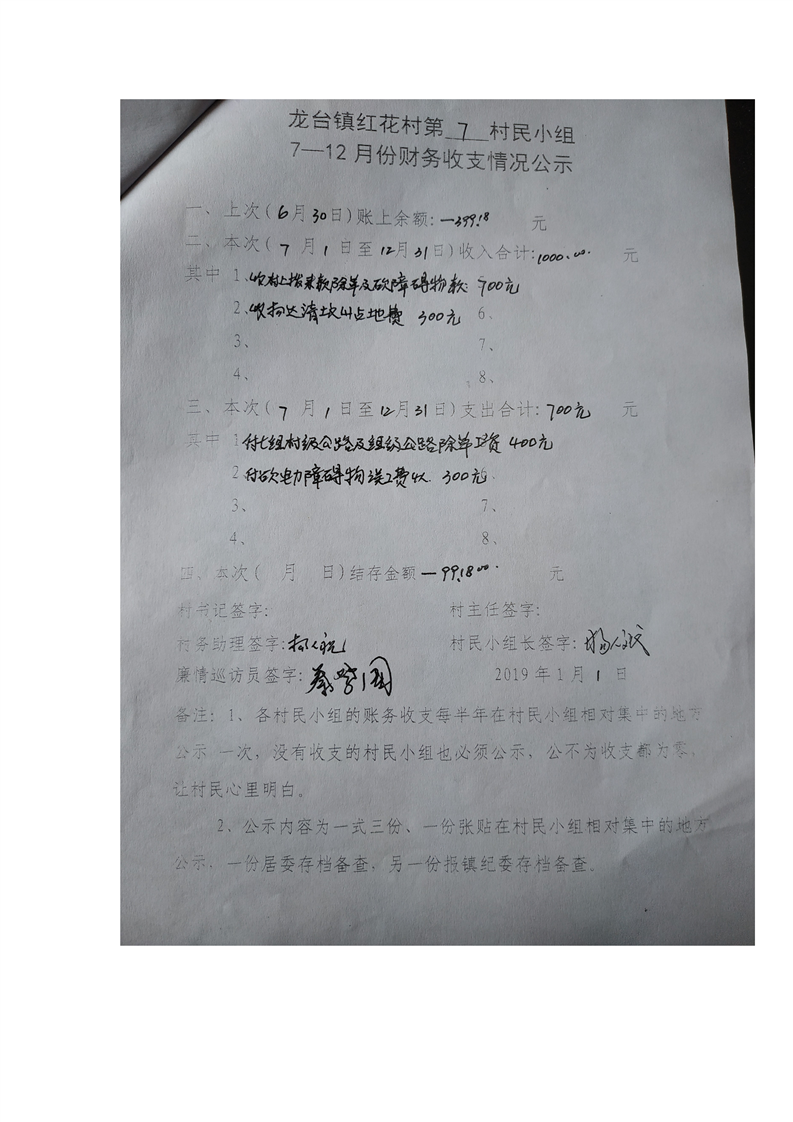 龙台镇红花村第 7 村民小组
7—12月份财务收支情况公示
一、上次(6月30日)账上余额:-399.18 元
二、本次(7月1日至12月31日)收入合计:1000.00 元
其中 1、收村上拨来款除草及砍障碍物款: 700元
2、收 占地费 300元 6、
3、 7、
4、 8、
三、本次(7月1日至12月31日)支出合计:700元 元
其中 1付七组村级公路及组级公路除草工资 400元
2付砍电力障碍物误工费 300元 6、
3、 7、
4、 8、
四、本次( 月 日)结存金额-99.18 元
村书记签字: 村主任签字:
村务助理签字: 村民小组长签字:
廉情巡访员签字: 2019年1月1日
备注: 1、各村民小组的账务收支每半年在村民小组相对集中的地方
公示 一次, 没有收支的村民小组也必须公示, 公不为收支都为零,
让村民心里明白。
2、公示内容为一式三份、一份张贴在村民小组相对集中的地方
公示, 一份居委存档备查, 另一份报镇纪委存档备查。